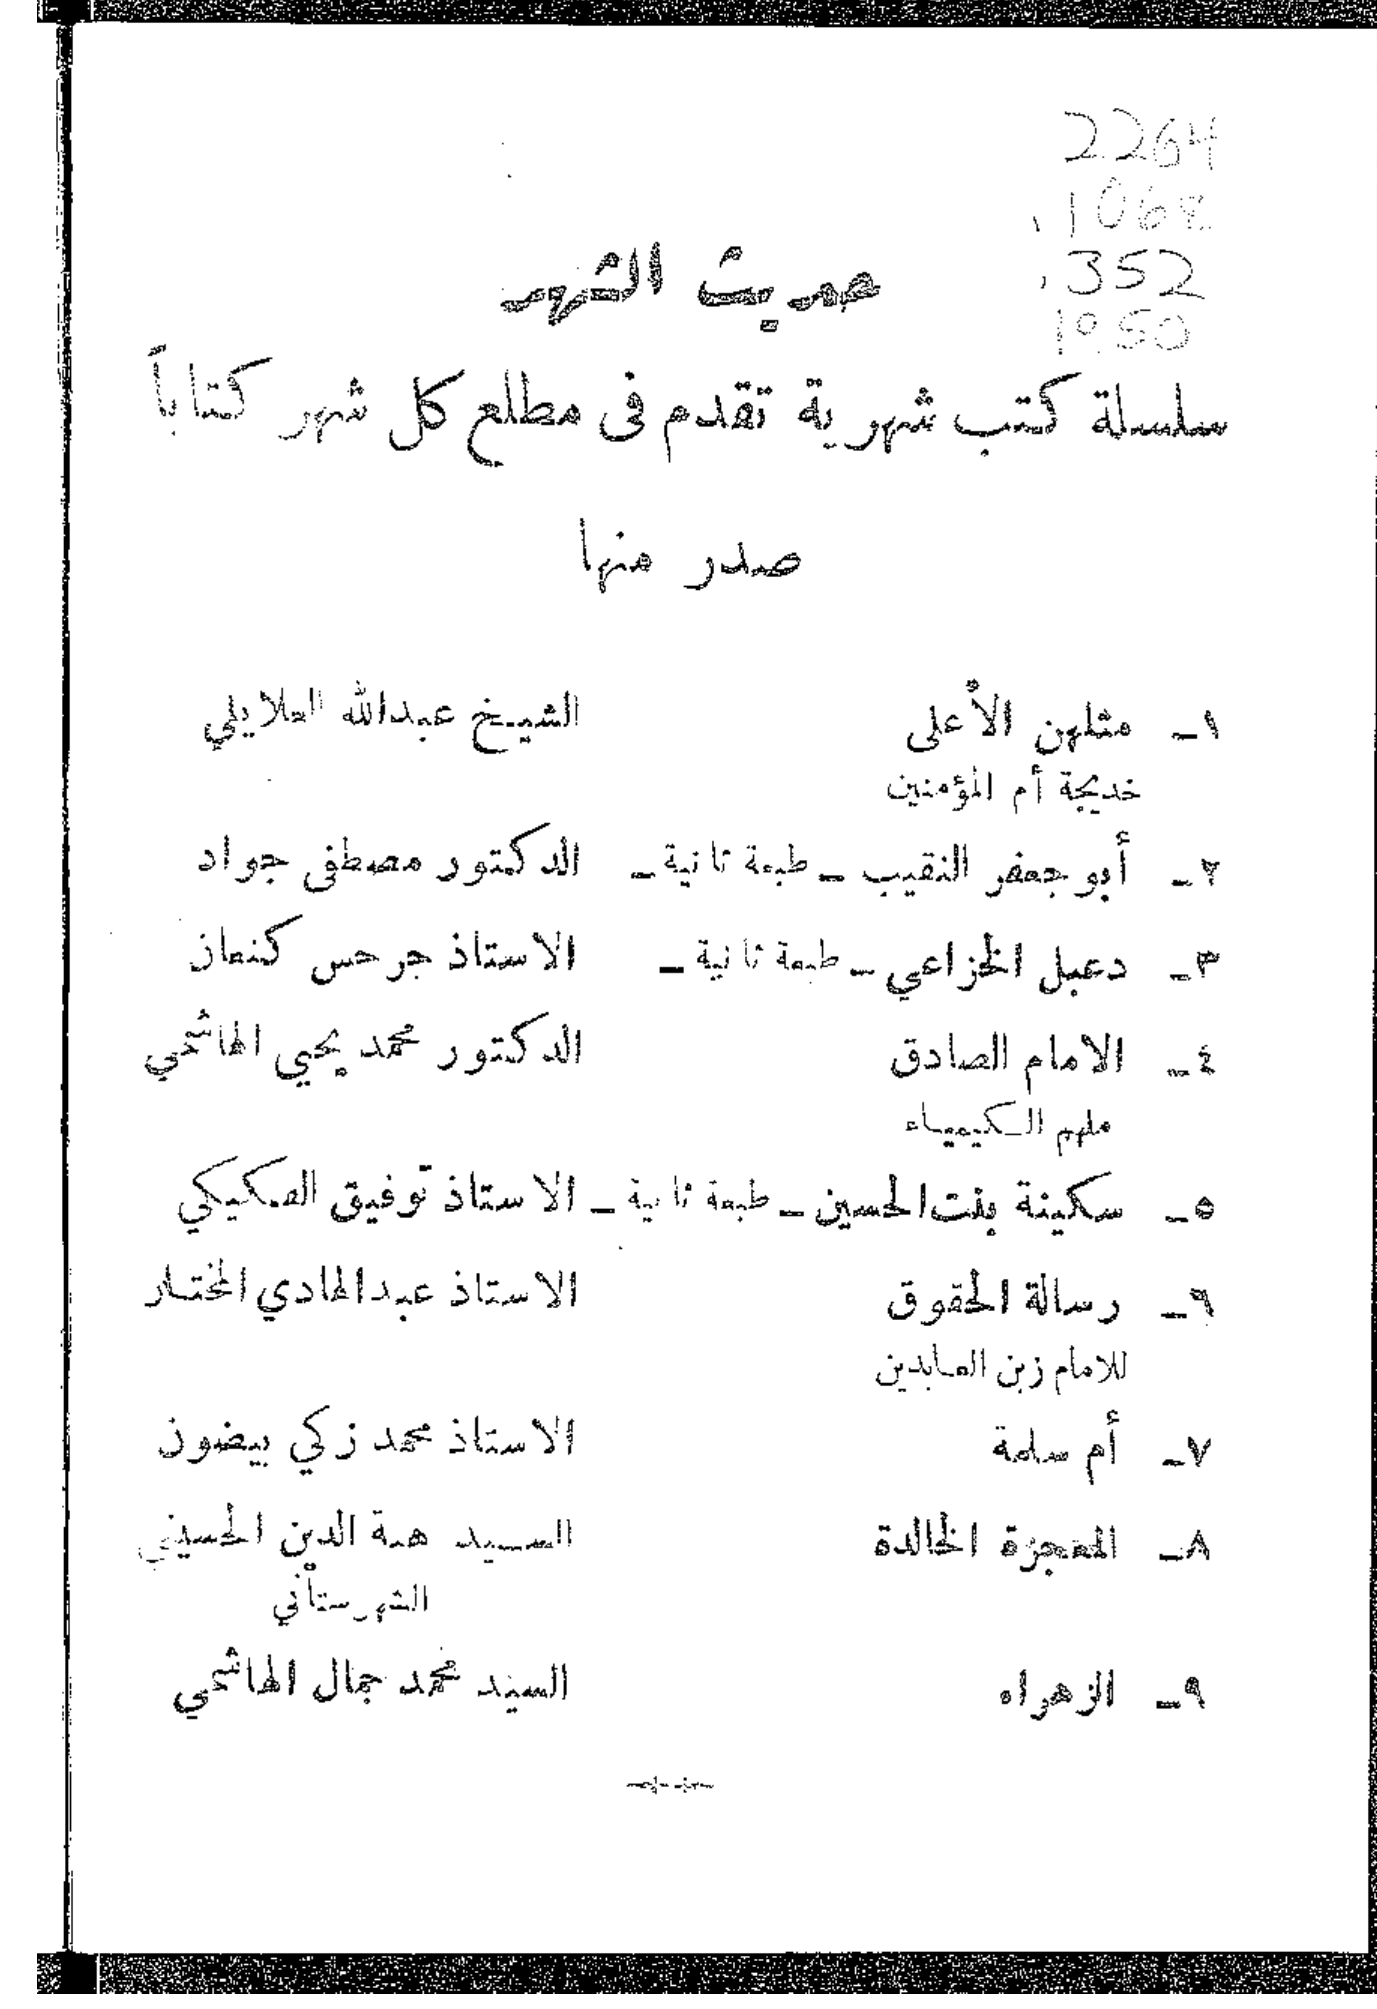 2264
.1068
.352
1950
حديث الشهر
سلسلة كتب شهرية تقدم في مطلع كل شهر كتاباً
صدر منها
١ـ مثلهن الأعلى الشيخ عبدالله العلايلي
خديجة أم المؤمنين
٢ـ أبو جعفر النقيب ـ طبعة ثانية ـ الدكتور مصطفى جواد
٣ـ دعبل الخزاعي ـ طبعة ثانية ـ الاستاذ جرجس كنعان
٤ـ الامام الصادق الدكتور محمد يحيى الهاشمي
ملهم الكيمياء
٥ـ سكينة بنت الحسين ـ طبعة ثانية ـ الاستاذ توفيق الفكيكي
٦ـ رسالة الحقوق الاستاذ عبدالهادي المختار
للامام زين العابدين
٧ـ أم سلمة الاستاذ محمد زكي بيضون
٨ـ المعجزة الخالدة السيد هبة الدين الحسيني
الشهرستاني
٩ـ الزهراء السيد محمد جمال الهاشمي